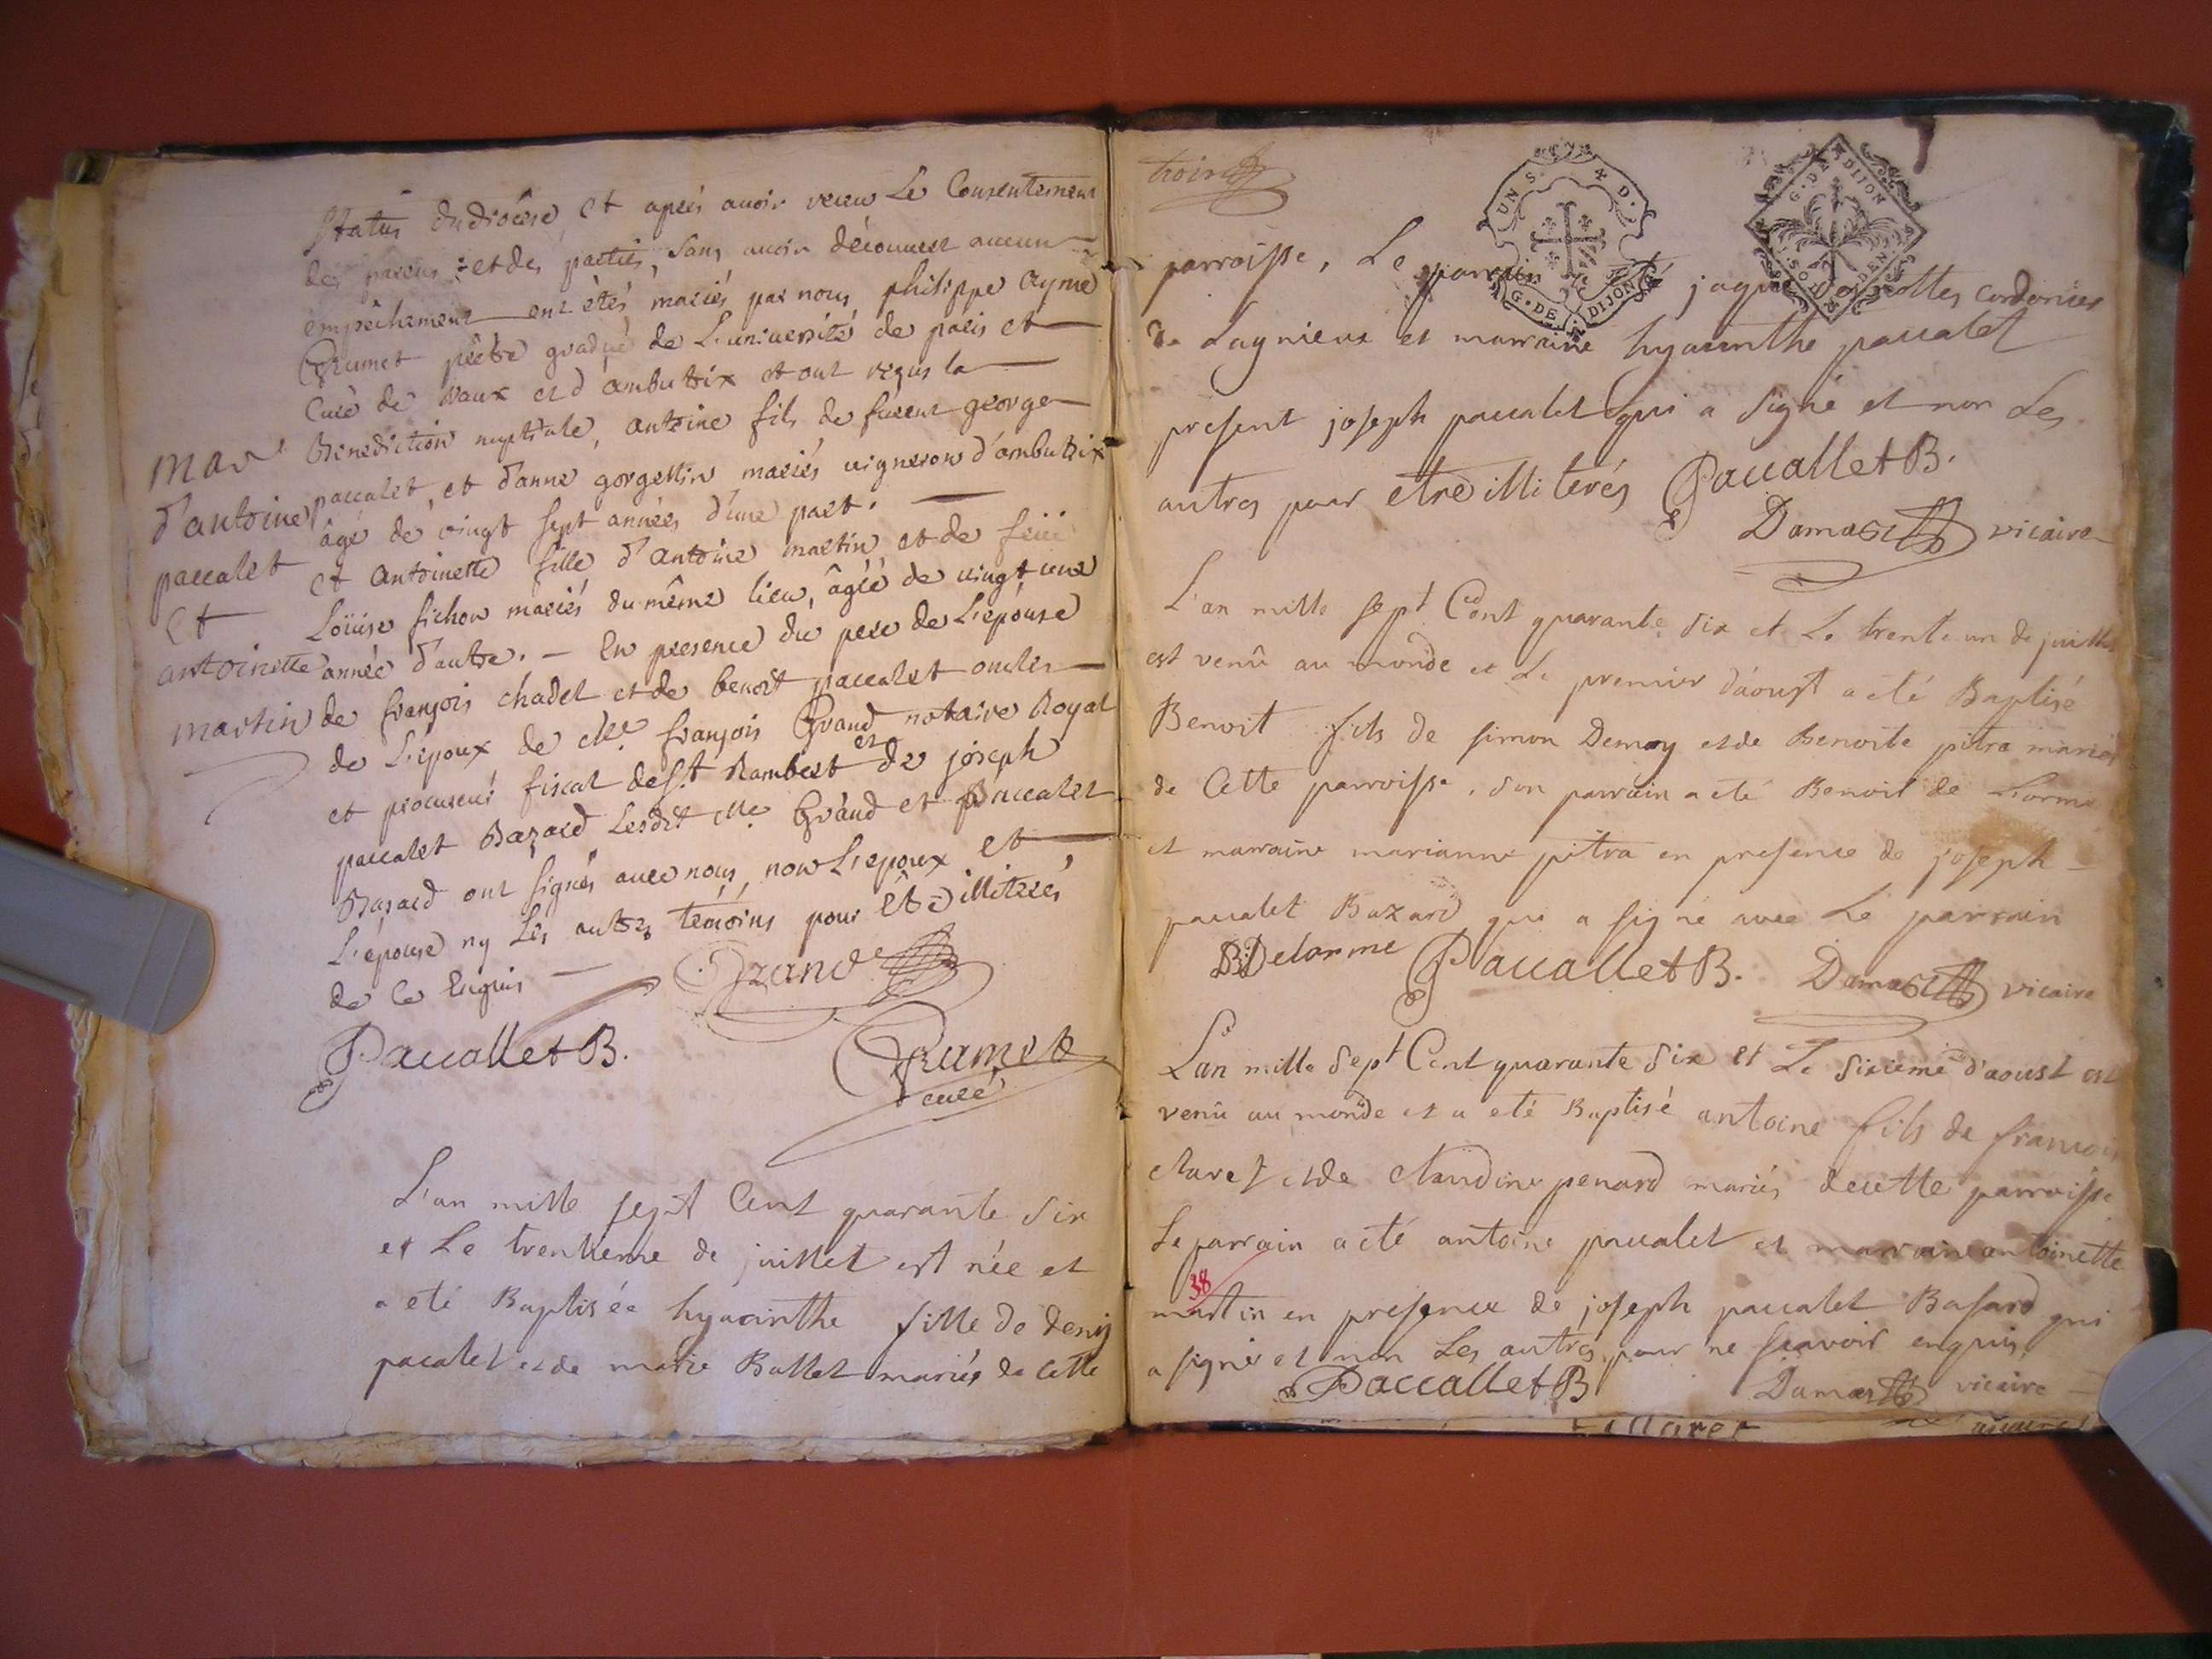 Status du diocèse, et après avoir receu Le Consentement
des parens et des parties, sans avoir découvert aucun
empêchement ont êtés mariés par nous philippe Aymé
Grumet prêtre gradué de L'université de paris et
Curé de Vaux et d'ambutrix et ont reçus la
Benediction nuptiale, antoine fils de furent george
paccalet, et d'anne gorgettin mariés vigneron d'ambutrix
âgé de vingt sept années d'une part.
et Antoinette fille d'antoine martin et de feüe
Loüise fichon mariés du même lieu, âgée de vingt une
année d'autre. — En presence du pere de L'épouse
de françois chadel et de benoit paccalet oncles
de L'époux de Me françois Grand notaire Royal
et procureur fiscal de St Rambert et de joseph
paccalet Bazard Lesdt Me Grand et paccalet
Bazard ont signés avec nous, non L'epoux et
L'épouse ny Les autres témoins pour être illiterés
de ce Enquis —
Grand
PaccalletB.
Grumet
curé
mar
d'antoine
paccalet
et
antoinette
martin
L'an mille sept Cent quarante six
et Le trentieme de juillet est née et
a eté Baptisée hyacinthe fille de denis
pacalet et de marie Ballet mariés de Cette
troin
UN S. D.
G. DE DIJON
G. DE DIJON
SOLS DEN
parroisse, Le parrain a eté jaque cottes cordonier
de Lagnieux et marraine hyacinthe paccalet
present joseph paccalet qui a signé et non Les
autres pour etre illiterés PaccalletB.
Damas vicaire
L'an mille sept Cent quarante six et Le trente un de juillet
est venû au monde et Le premier d'aoust a eté Baptisé
Benoit fils de simon Demoy et de Benoite pitra mariés
de Cette parroisse, son parrain a eté Benoit de Lorme
et marraine marianne pitra en presence de joseph
paccalet Bazard qui a signé avec Le parrain
B. Delorme PaccalletB. Damas vicaire
L'an mille sept Cent quarante six et Le sixieme d'aoust est
venû au monde et a eté Baptisé antoine fils de francois
claret et de claudine penard mariés de cette parroisse
Le parrain a eté antoine paccalet et marraine antoinette
38
martin en presence de joseph paccalet Basard qui
a signé et non Les autres pour ne scavoir enquis,
PaccalletB Damas vicaire